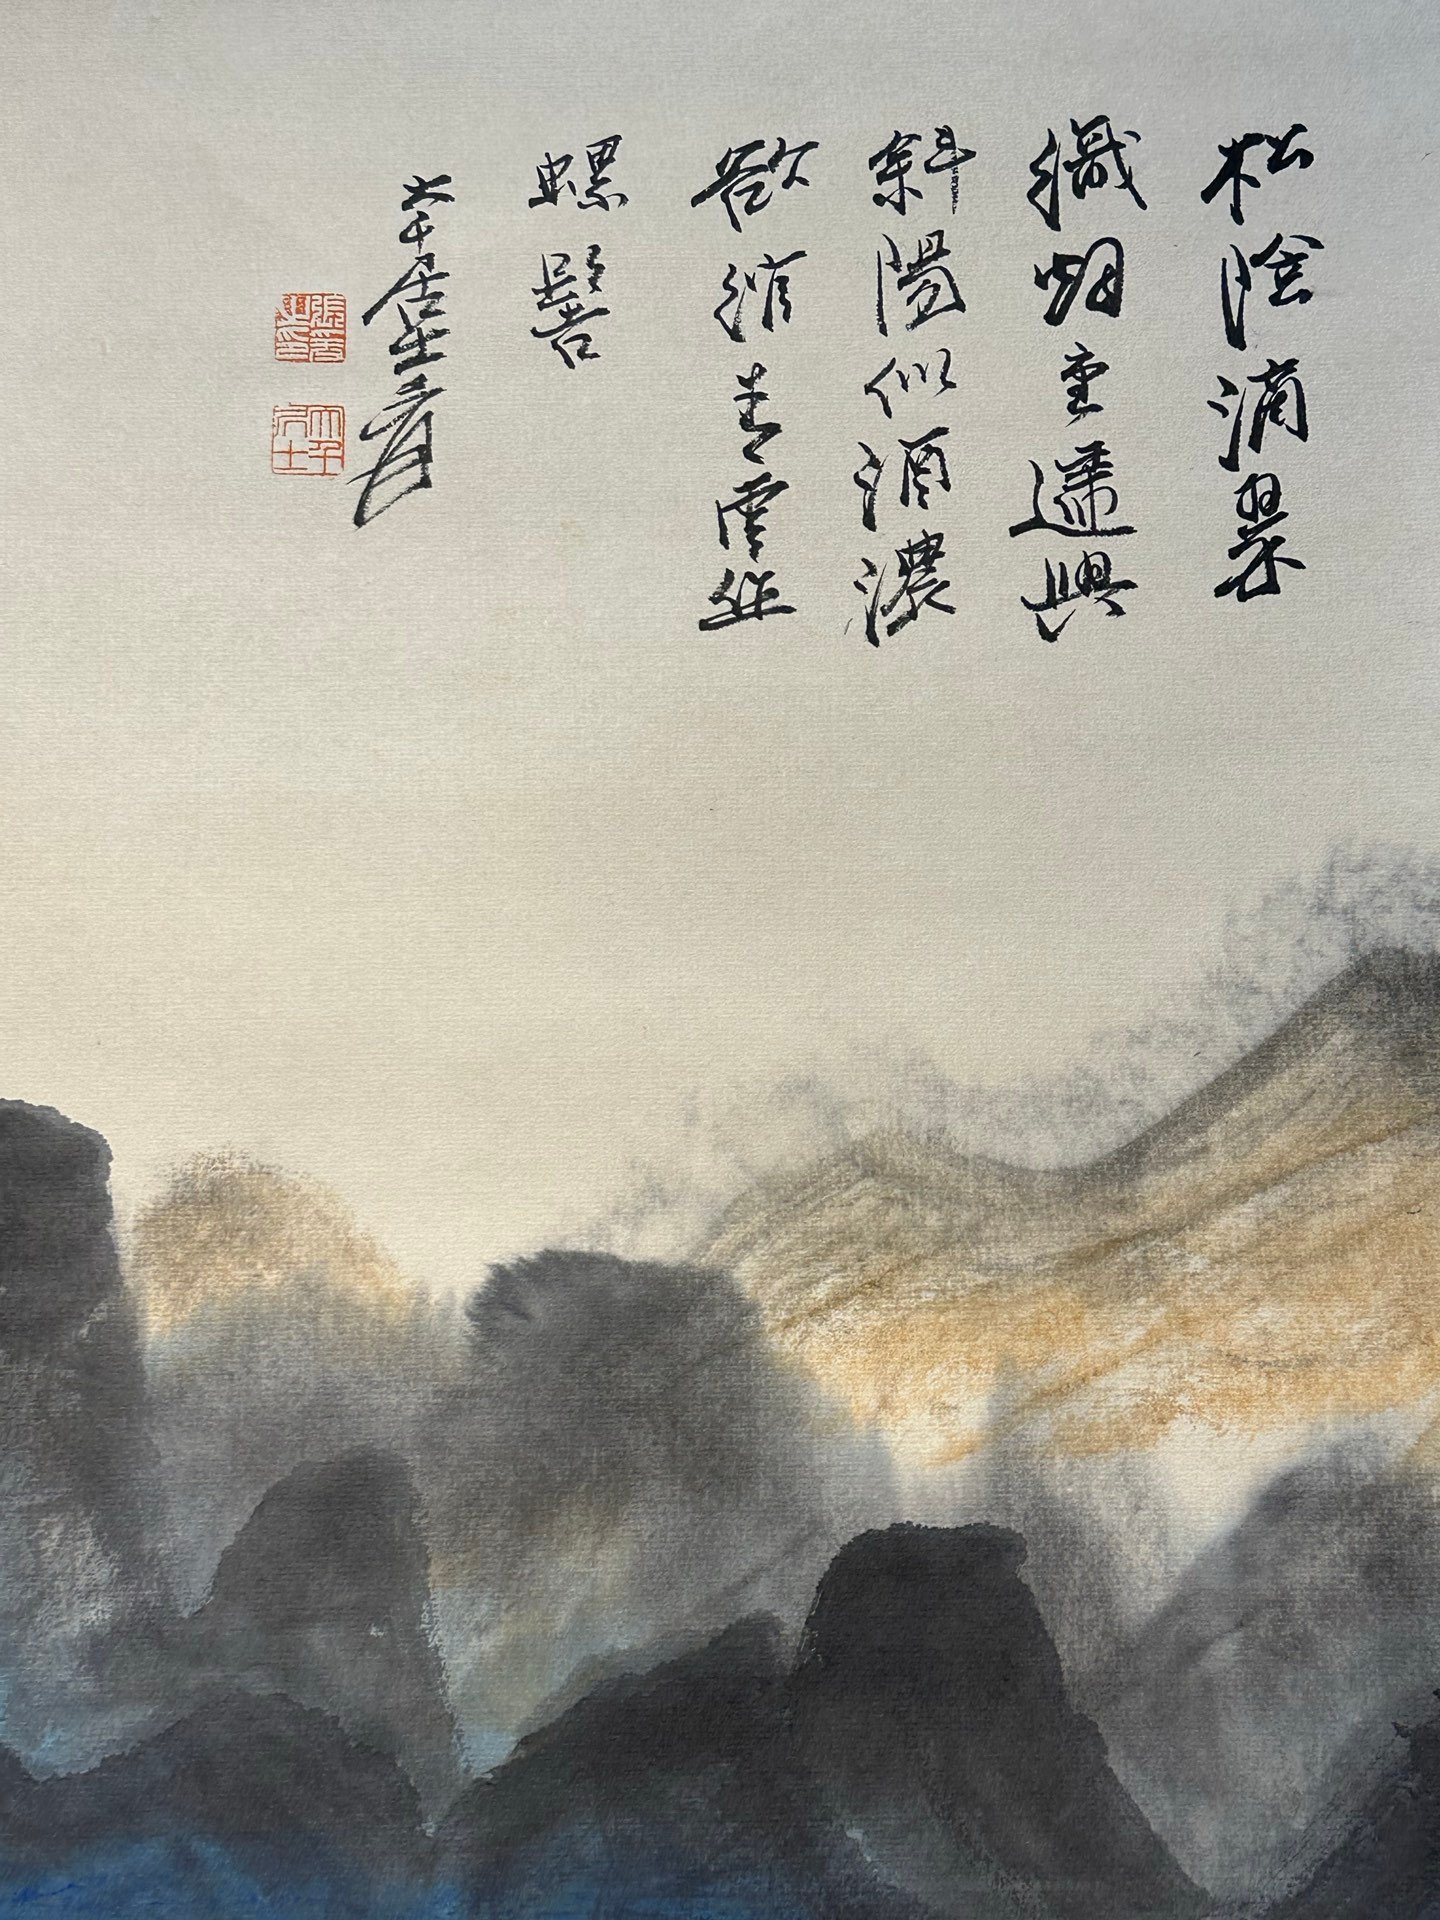 松陰滴翠
織烟重遞與
斜陽似酒濃
欲綰青雲作
螺髻
大千居士爰
大千居士